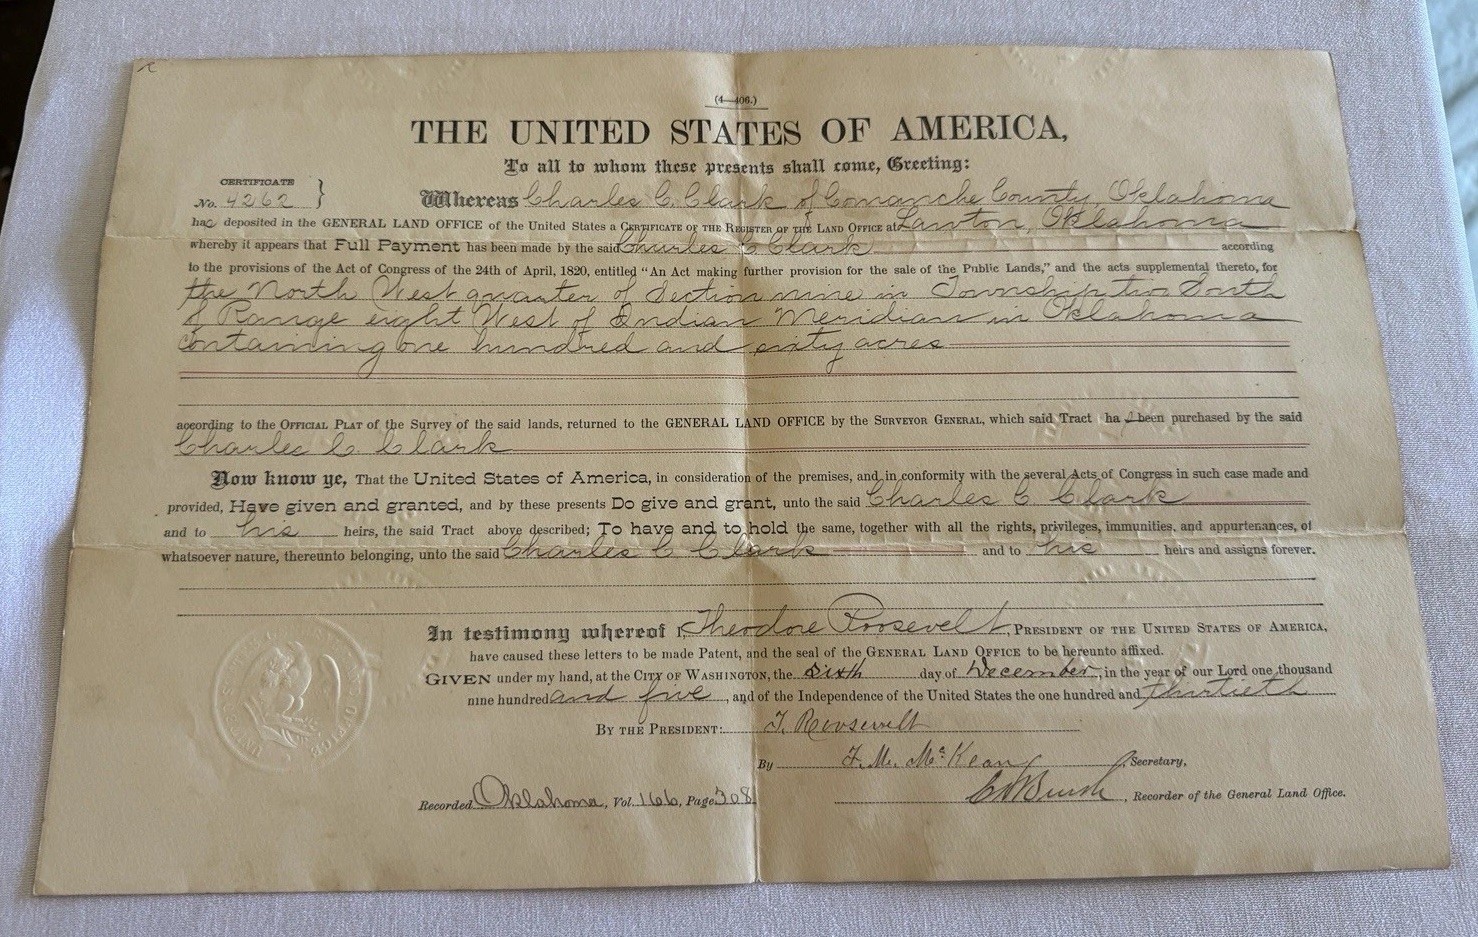 (4—406.)
THE UNITED STATES OF AMERICA,
To all to whom these presents shall come, Greeting:
CERTIFICATE
No. 4262 }
Whereas Charles C. Clark of Comanche County, Oklahoma
has deposited in the GENERAL LAND OFFICE of the United States a CERTIFICATE OF THE REGISTER OF THE LAND OFFICE at Lawton, Oklahoma
whereby it appears that Full Payment has been made by the said Charles C Clark according
to the provisions of the Act of Congress of the 24th of April, 1820, entitled “An Act making further provision for the sale of the Public Lands,” and the acts supplemental thereto, for
the North West quarter of Section nine in Township two South
of Range eight West of Indian Meridian in Oklahoma
containing one hundred and sixty acres
according to the OFFICIAL PLAT of the Survey of the said lands, returned to the GENERAL LAND OFFICE by the SURVEYOR GENERAL, which said Tract has been purchased by the said
Charles C. Clark
Now know ye, That the United States of America, in consideration of the premises, and in conformity with the several Acts of Congress in such case made and
provided, Have given and granted, and by these presents Do give and grant, unto the said Charles C. Clark
and to his heirs, the said Tract above described; To have and to hold the same, together with all the rights, privileges, immunities, and appurtenances, of
whatsoever nature, thereunto belonging, unto the said Charles C Clark and to his heirs and assigns forever.
In testimony whereof I, Theodore Roosevelt, PRESIDENT OF THE UNITED STATES OF AMERICA,
have caused these letters to be made Patent, and the seal of the GENERAL LAND OFFICE to be hereunto affixed.
GIVEN under my hand, at the CITY OF WASHINGTON, the sixth day of December, in the year of our Lord one thousand
nine hundred and five, and of the Independence of the United States the one hundred and thirtieth
BY THE PRESIDENT: T. Roosevelt
By F. M. McKean, Secretary,
Recorded Oklahoma, Vol. 166, Page 308
, Recorder of the General Land Office.